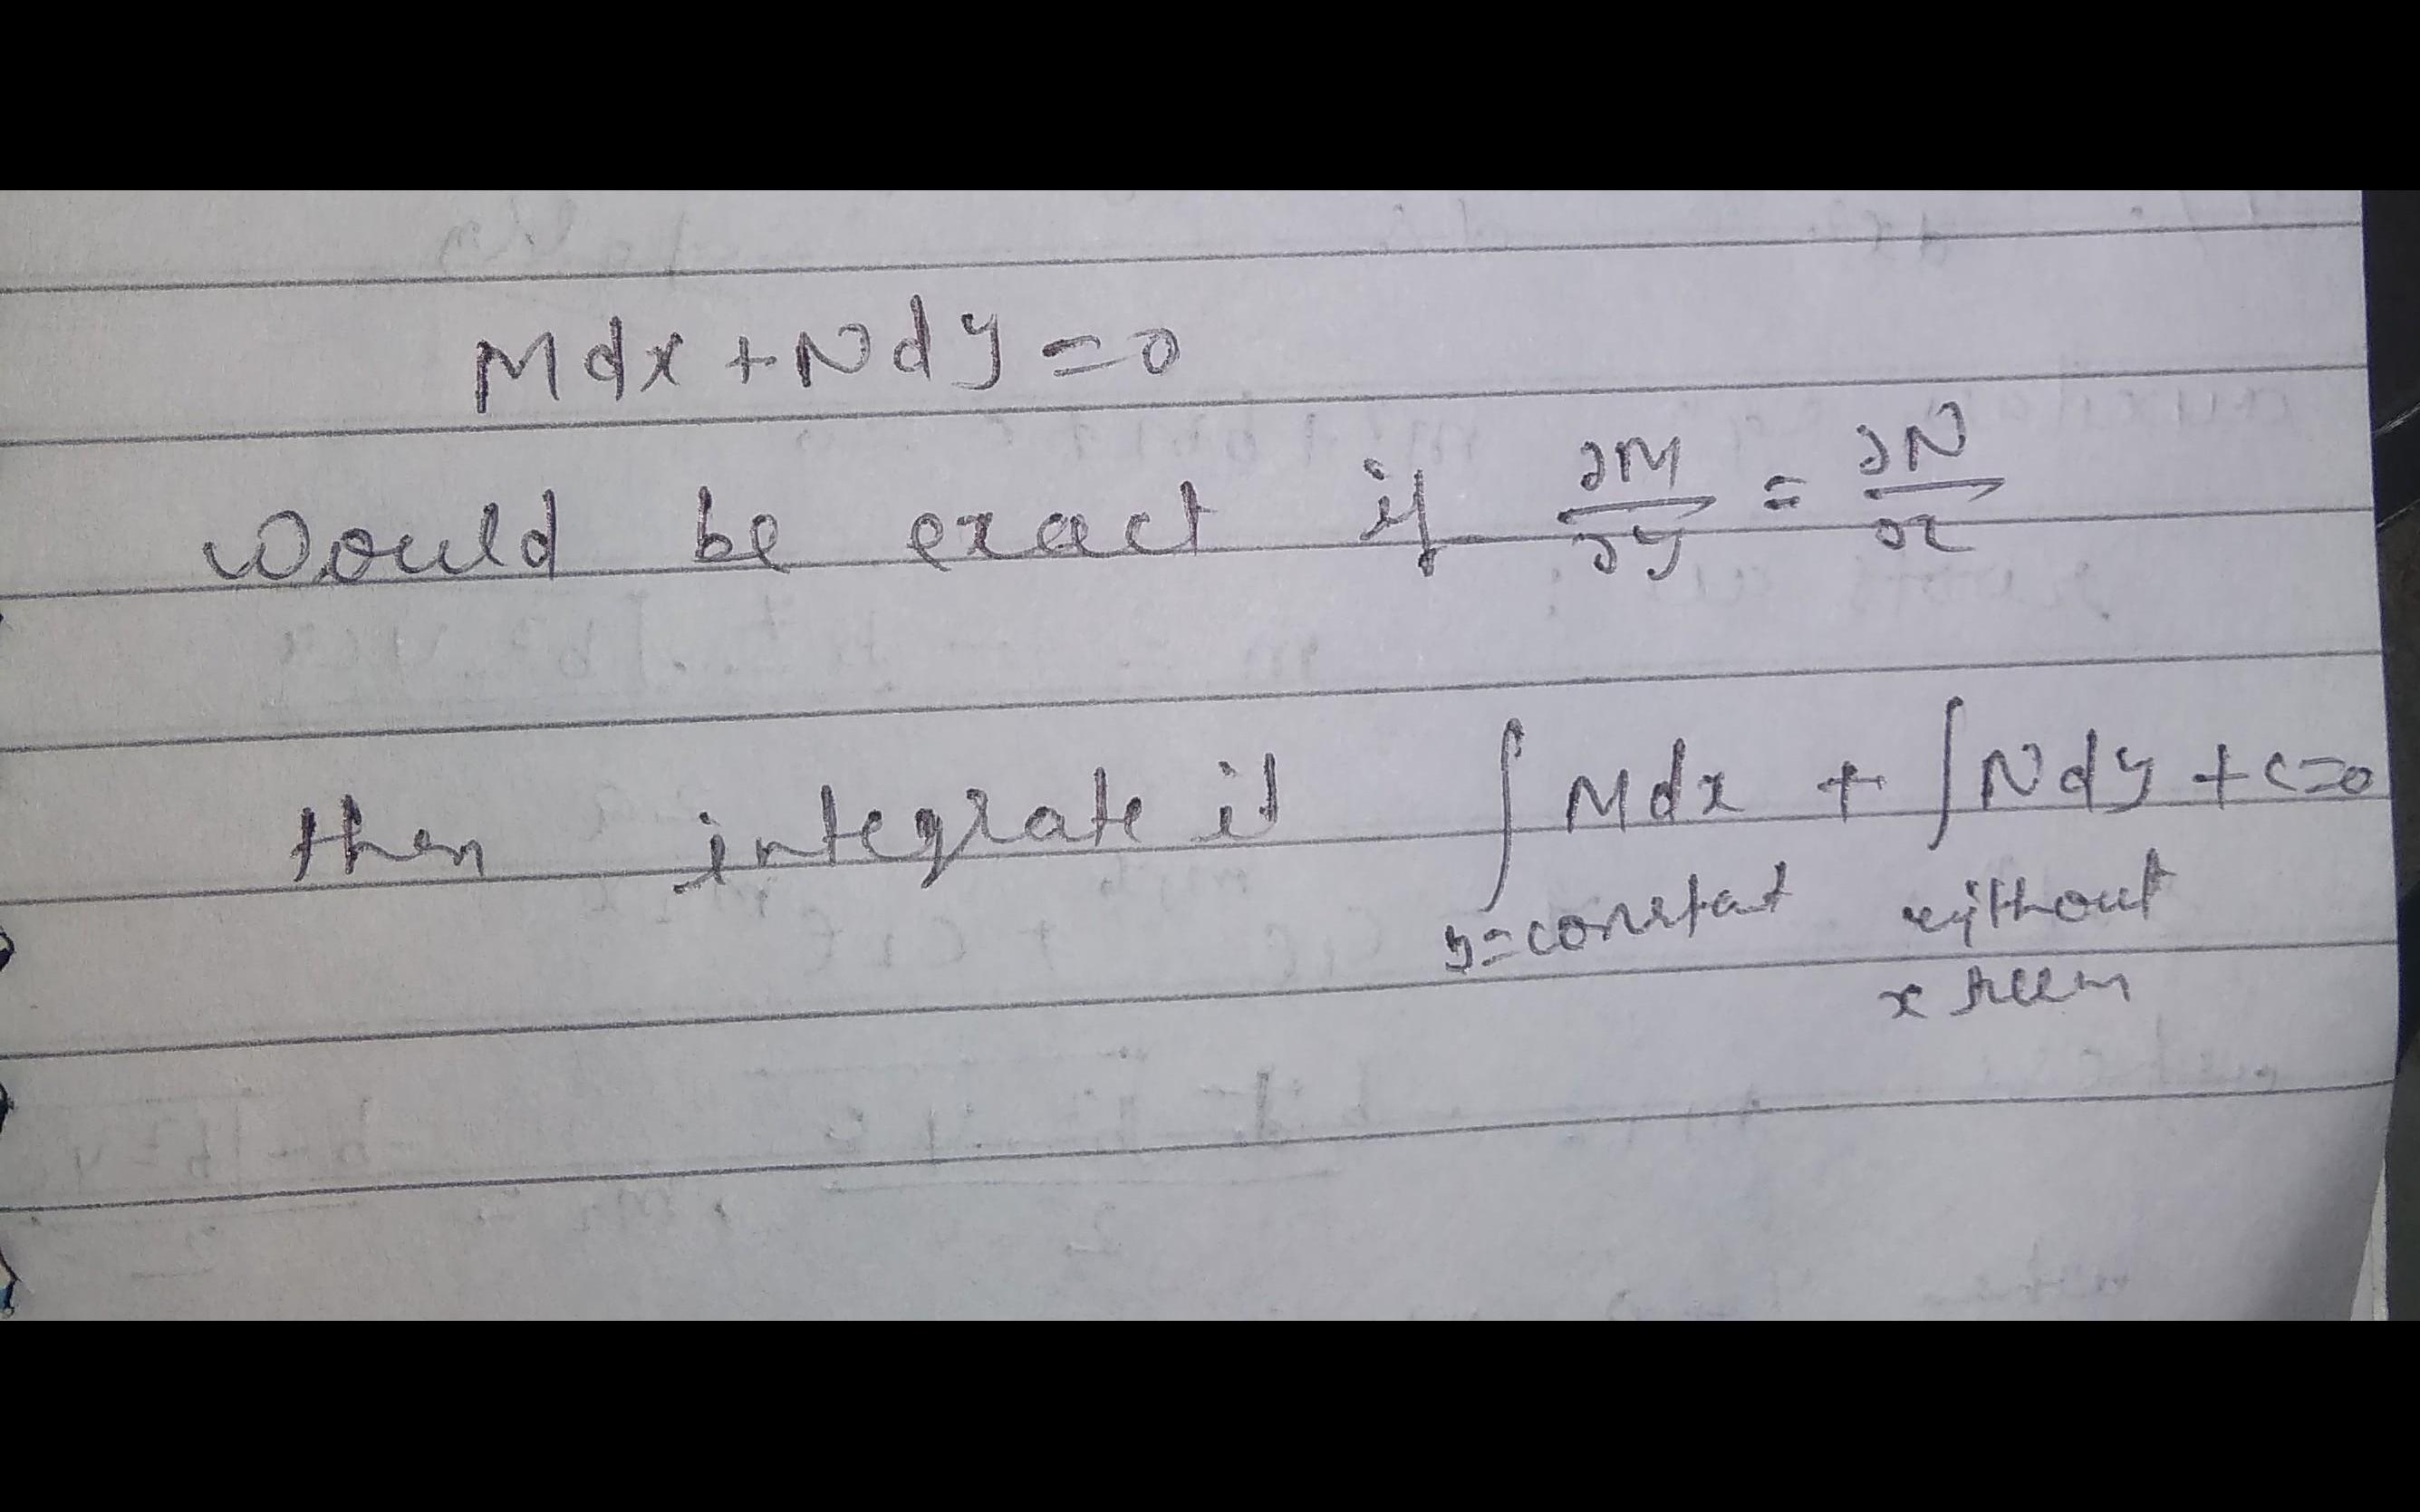 Mdx + Ndy = 0
would be exact if ∂M/∂y = ∂N/∂x
then integrate it ∫ Mdx + ∫ Ndy + c = 0
y = constat without
x